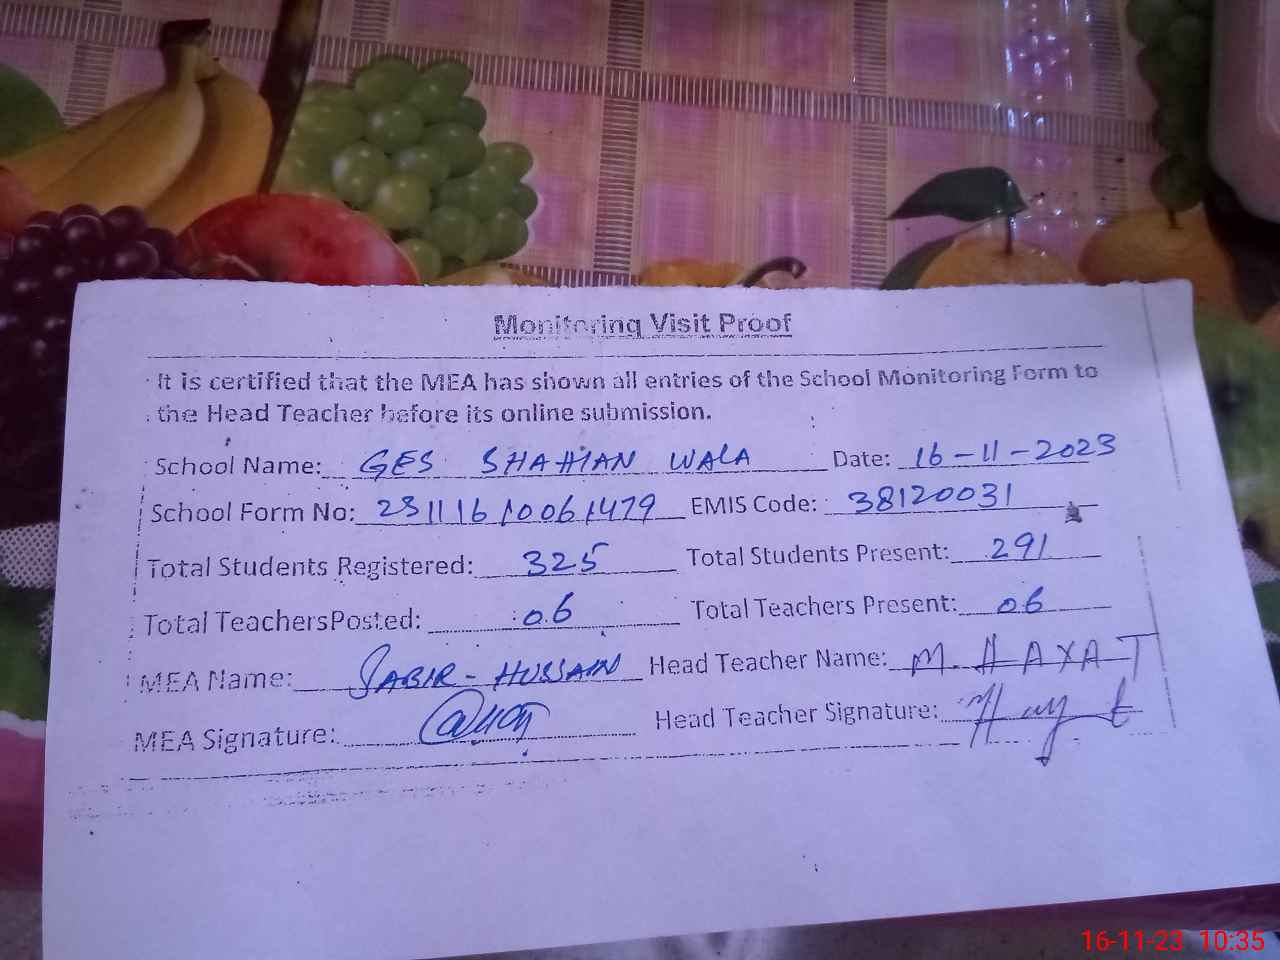 Monitoring Visit Proof
It is certified that the MEA has shown all entries of the School Monitoring Form to
the Head Teacher before its online submission.
School Name: GES SHAHIAN WALA Date: 16-11-2023
School Form No: 231116 10061479 EMIS Code: 38120031
Total Students Registered: 325 Total Students Present: 291
Total TeachersPosted: 06 Total Teachers Present: 06
MEA Name: SABIR-HUSSAIN Head Teacher Name: M. HAYAT
MEA Signature: Head Teacher Signature: Hayat
16-11-23 10:35